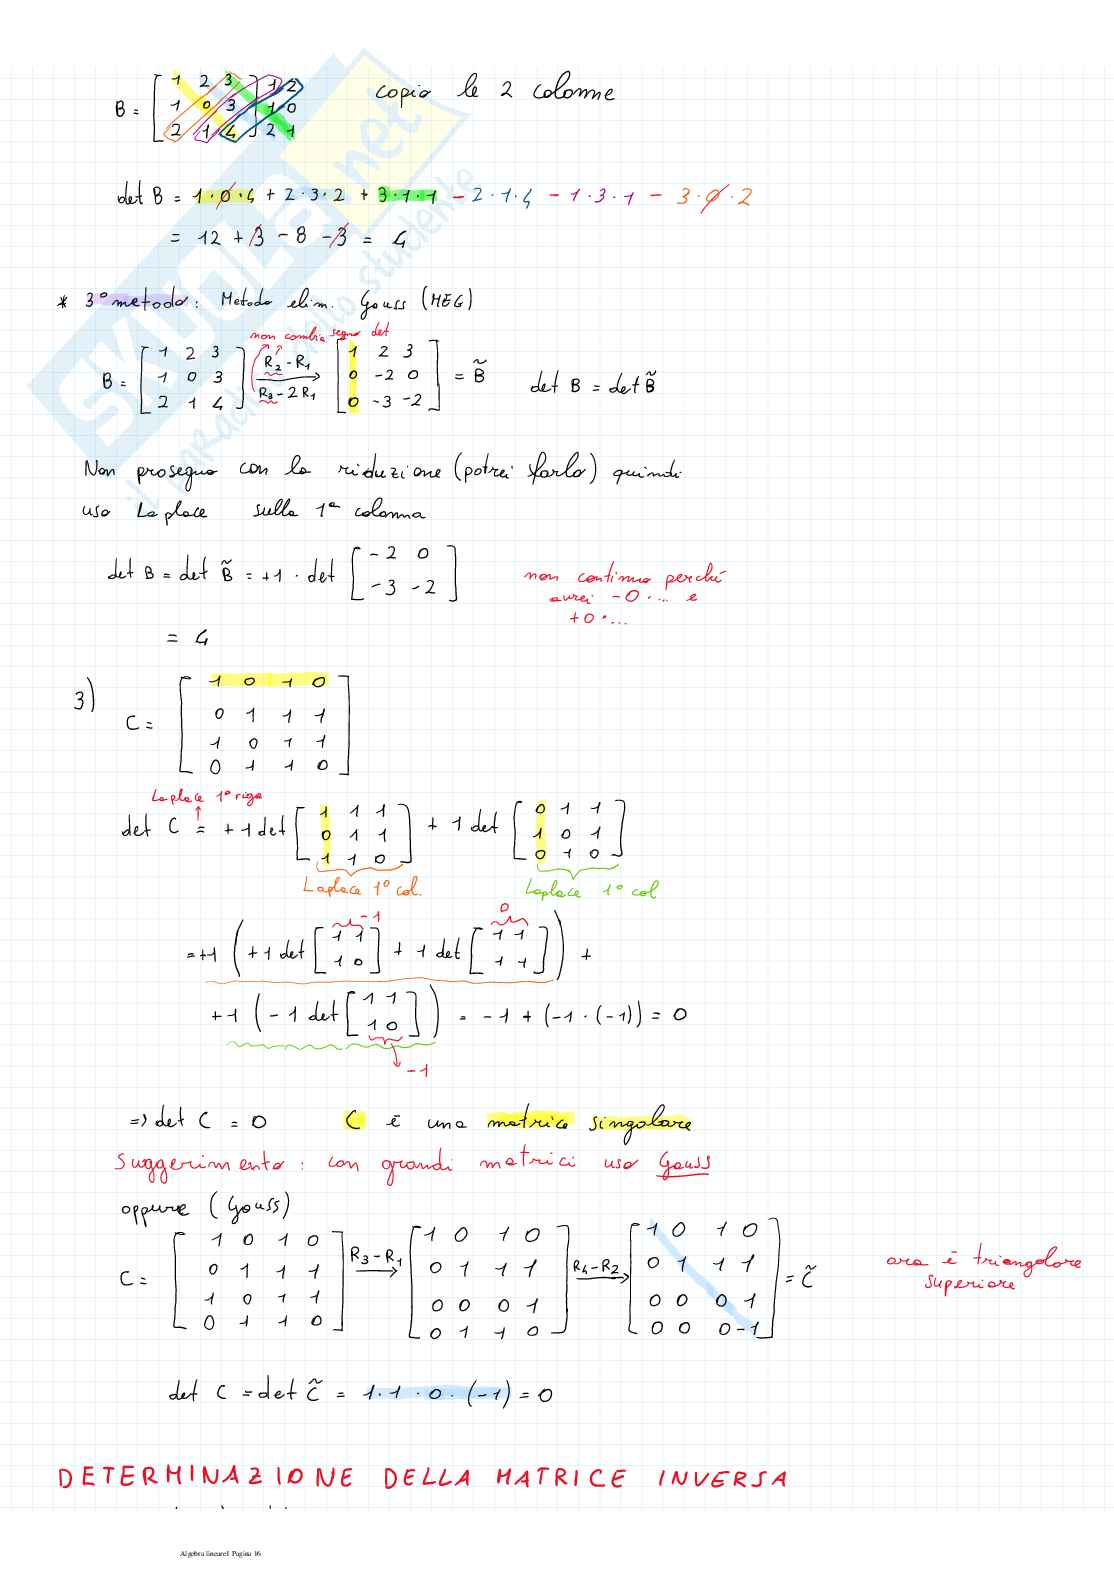 B = [ 1 2 3 ] 1 2
1 0 3 1 0
2 1 4 2 1
copio le 2 colonne
det B = 1·0·4 + 2·3·2 + 3·1·1 - 2·1·4 - 1·3·1 - 3·0·2
= 12 + 3 - 8 - 3 = 4
* 3° metodo: Metodo elim. Gauss (MEG)
non cambia segno det
B = [ 1 2 3 ] R2 - R1 [ 1 2 3 ]
1 0 3 → 0 -2 0 = B̃ det B = det B̃
2 1 4 R3 - 2R1 0 -3 -2
Non proseguo con la riduzione (potrei farlo) quindi
uso La place sulla 1ª colonna
det B = det B̃ = +1 · det [ -2 0
-3 -2 ]
non continuo perché
avrei -0·... e
+0·...
= 4
3)
C = [ 1 0 1 0 ]
0 1 1 1
1 0 1 1
0 1 1 0
Laplace 1° riga
det C = +1 det [ 1 1 1 ] + 1 det [ 0 1 1 ]
0 1 1 1 0 1
1 1 0 0 1 0
Laplace 1° col. Laplace 1° col
-1 0
= +1 ( +1 det [ 1 1 ] + 1 det [ 1 1 ] ) +
1 0 1 1
+1 ( -1 det [ 1 1 ] ) = -1 + (-1·(-1)) = 0
1 0
-1
=> det C = 0 C è una matrice singolare
Suggerimento: con grandi matrici uso Gauss
oppure (Gauss)
C = [ 1 0 1 0 ] R3 - R1 [ 1 0 1 0 ] R4 - R2 [ 1 0 1 0 ]
0 1 1 1 → 0 1 1 1 → 0 1 1 1 = C̃
1 0 1 1 0 0 0 1 0 0 0 1
0 1 1 0 0 1 1 0 0 0 0 -1
ora è triangolare
superiore
det C = det C̃ = 1·1·0·(-1) = 0
DETERMINAZIONE DELLA MATRICE INVERSA
Algebra lineare1 Pagina 16
SKUOLA.net
il paradiso dello studente